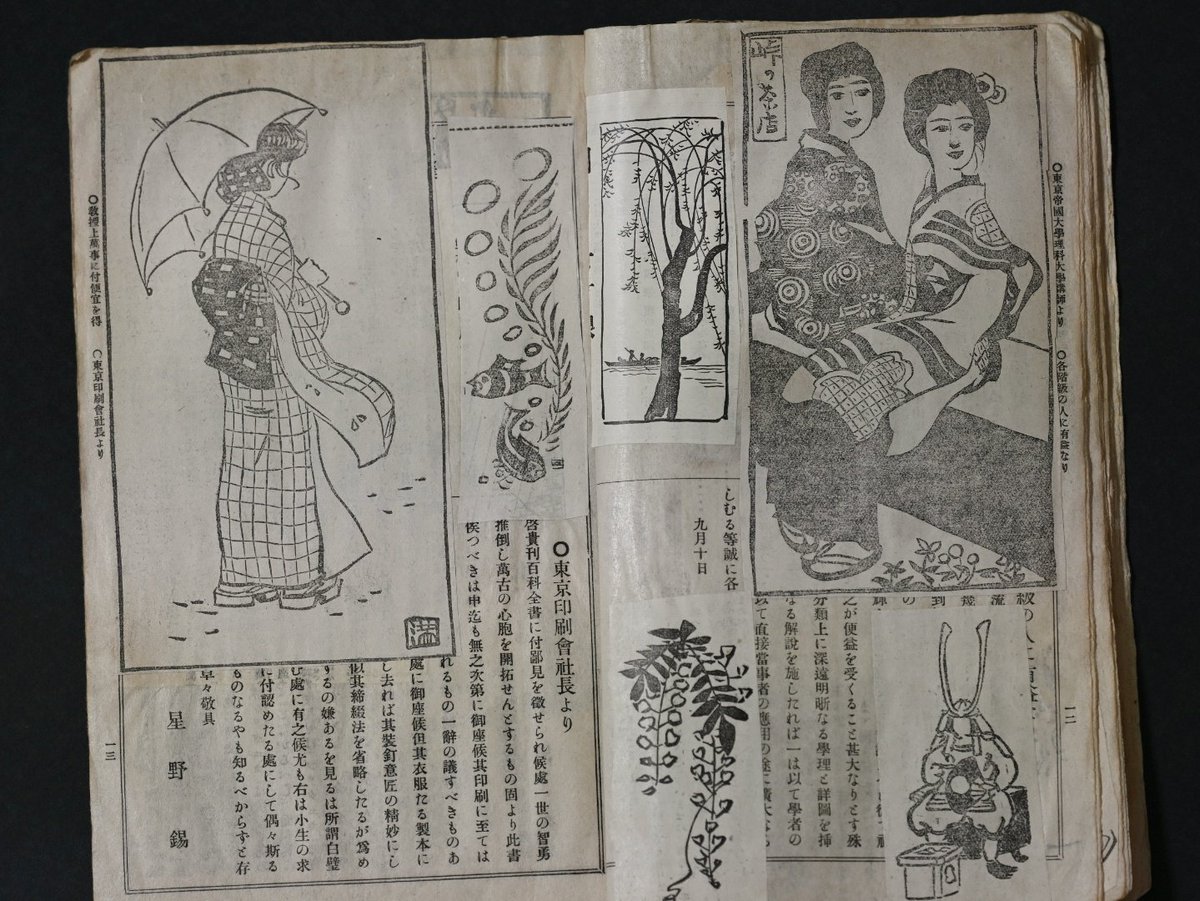 峠の茶店
○東京帝國大學理科大學講師より
○各階級の人に有益なり
一二
しむる等誠に各
九月十日
之が便益を受くること甚大なりとす殊
分類上に深遠明晰なる學理と詳圖を挿
なる解說を施したれば一は以て學者の
以て直接當事者の應用の途に
○東京印刷會社長より
啓貴刊百科全書に付鄙見を徵せられ候處一世の智勇
推倒し萬古の心胞を開拓せんとするもの固より此書
候つべきは申迄も無之次第に御座候其印刷に至ては
れるもの一辭の議すべきものあ
處に御座候但其衣服たる製本に
し去れば其裝釘意匠の精妙にし
似其締綴法を省略したるが爲め
するの嫌あるを見るは所謂白璧
む處に有之候尤も右は小生の求
に付認めたる處にして偶々斯る
ものなるやも知るべからずと存
草々敬具
星野錫
○敎授上萬事に付便宜を得
○東京印刷會社長より
一三